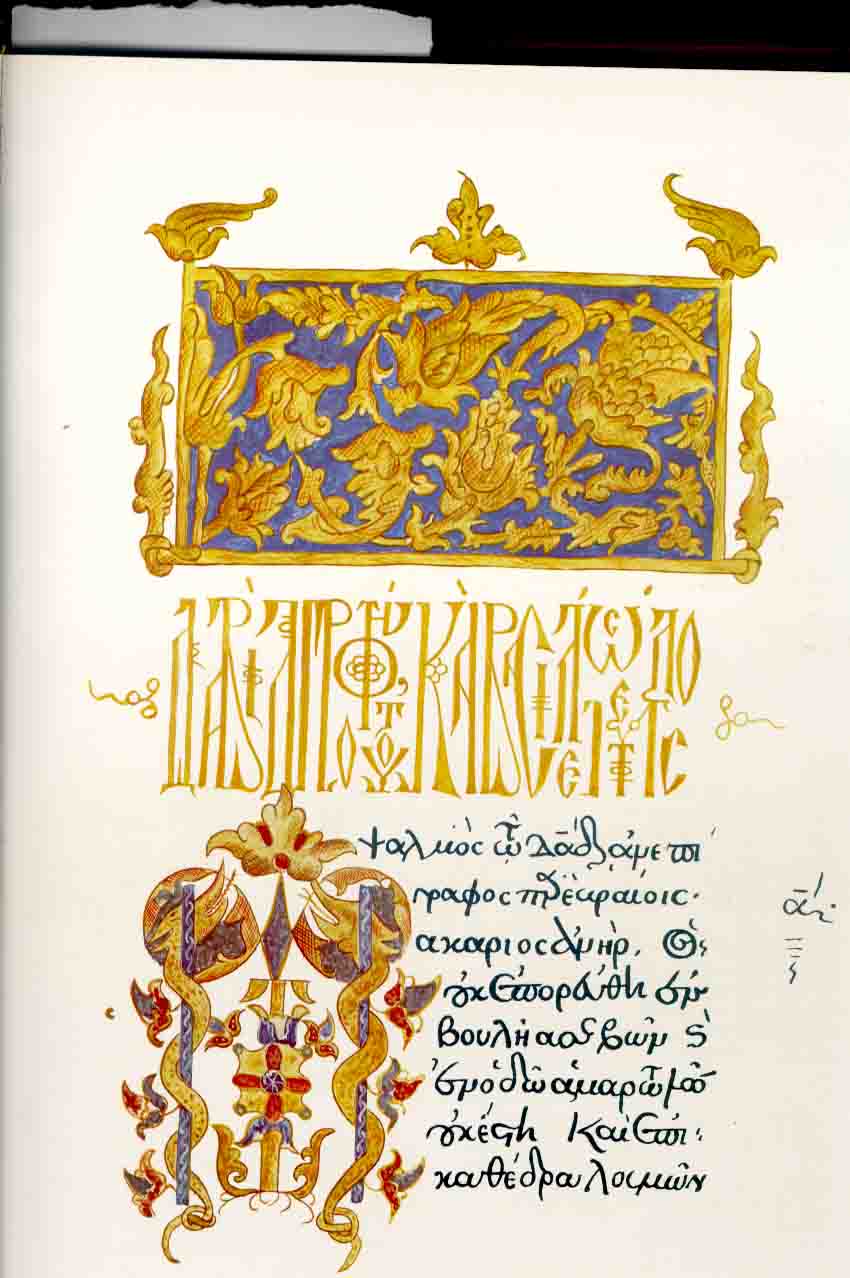 ΔΑΒΙΔ ΠΡΟΦΗΤΟΥ ΚΑΙ ΒΑCΙΛΕωC
ψαλμὸς τῷ Δα̅δ ἀνεπί
γραφος παρ' ἑβραίοις·
ακαριος ἀνὴρ, Ὃς
οὐκ ἐπορεύθη ἐν
βουλῇ ἀσεβῶν ϗ
ἐν ὁδῷ ἁμαρτωλῶν
οὐκ ἔστη καὶ ἐπὶ
καθέδρα λοιμῶν